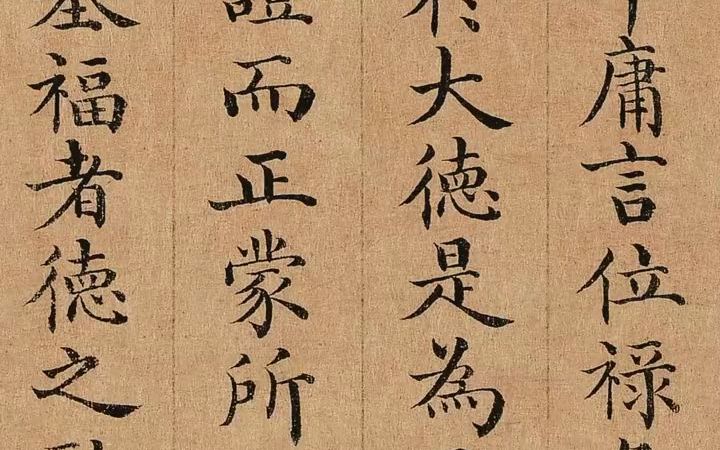 庸言位祿
於大德是為
證而正蒙所
基福者德之